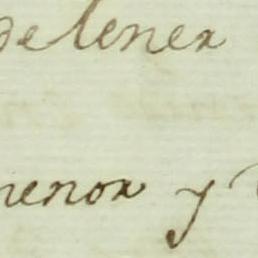 de tener
menor y